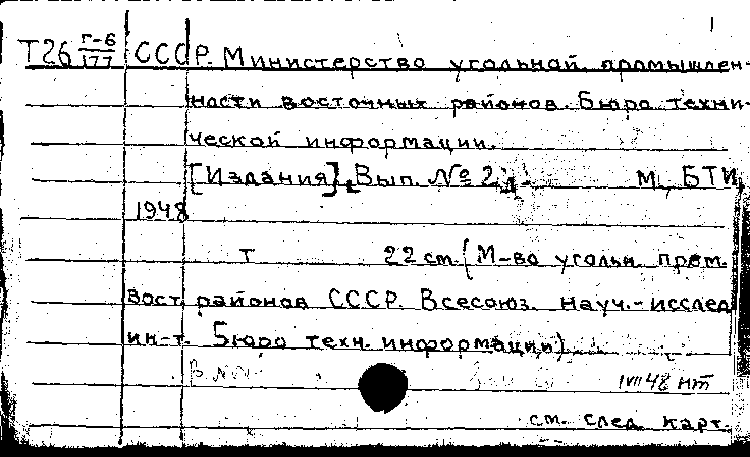 1
Т26 Г-6/177 СССР. Министерство угольной промышлен-
ности восточных районов. Бюро техни-
ческой информации.
[Издания]. Вып. № 2, М., БТИ,
1948
т 22 см. (М-во угольн. пром.
вост. районов СССР. Всесоюз. науч.-исслед.
ин-т. Бюро техн. информации).
48 нт
см. след. карт.